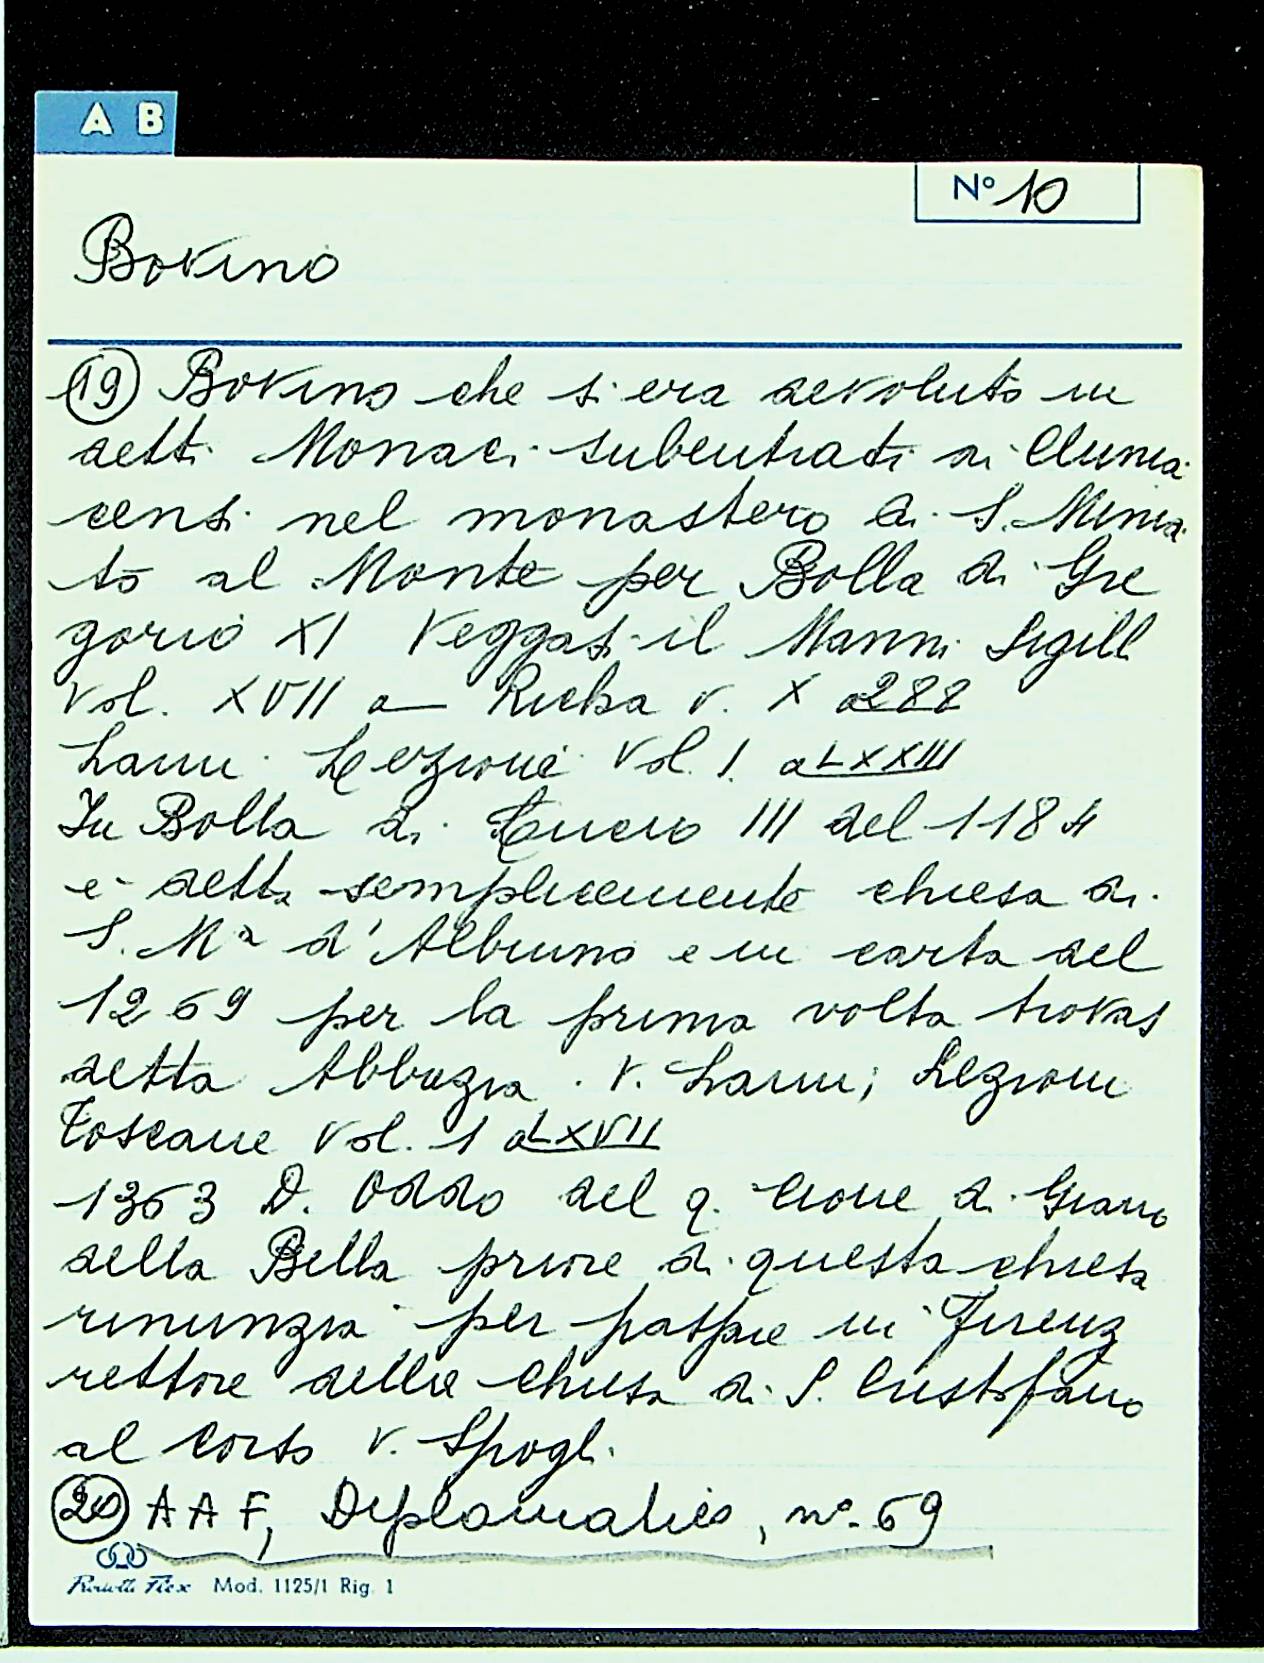 A B
N° 10
Bovino
19 Bovino che si era devoluto in
detti Monaci subentrati ai Clunia
censi nel monastero di S. Minia
to al Monte per Bolla di Gre
gorio XI Veggasi il Manni Sigill
vol. XVII a — Richa v. X a 288
Lami Lezione Vol. 1. a LXXIII
In Bolla di Lucio III del 1184
e detta semplicemente chiesa di
S. Mª d'Albuino e in carta del
1269 per la prima volta trovasi
detta Abbazia. V. Lami, Lezioni
Toscane Vol. 1 a LXVII
1363 D. Oddo del q. Cione di Giano
della Bella priore di questa chiesa
rinunzia per passare in Firenz
rettore della Chiesa di S. Cristofano
al Corso v. Spogli
20 AAF, Diplomatico, n° 69
Mod. 1125/1 Rig. 1